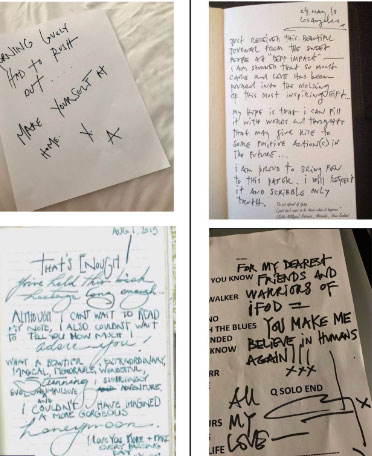 MORNING LOVELY
HAD TO RUSH
OUT ....
MAKE YOURSELF AT
HOME X
A
24 MAY/19
Los Angeles
JUST RECEIVED THIS BEAUTIFUL
JOURNAL FROM THE SWEET
PEOPLE AT "DEPP IMPACT"
I AM STUNNED THAT SO MUCH
CARE AND LOVE HAS BEEN
POURED INTO THE MAKING
OF THIS MOST INSPIRING GIFT.
MY HOPE IS THAT I CAN FILL
IT WITH WORDS AND THOUGHTS
THAT MAY GIVE RISE TO
SOME POSITIVE ACTION(S) IN
THE FUTURE...
I AM PROUD TO BRING PEN
TO THIS PAPER. I WILL RESPECT
IT AND SCRIBBLE ONLY
TRUTH.
2015
THAT'S ENOUGH!
You've held this back
message long enough
ALTHOUGH I CAN'T WAIT TO READ
MY NOTE, I ALSO COULDN'T WAIT
TO TELL YOU HOW MUCH I
adore you!
WHAT A BEAUTIFUL, EXTRAORDINARY,
MAGICAL, MEMORABLE, WONDERFUL,
Stunning, SURPRISINGLY
ADVENTURE,
AND
I COULDN'T HAVE IMAGINED
A MORE GORGEOUS
honeymoon.
I LOVE YOU MORE + MORE
EVERY PASSING
DAY
FOR MY DEAREST
YOU KNOW FRIENDS AND
WALKER WARRIORS OF
IFOD =
THE BLUES YOU MAKE ME
NDED BELIEVE IN HUMANS
KNOW AGAIN!!!
XXX
RR
Q SOLO END
All X
IRS MY
LIFE LOVE